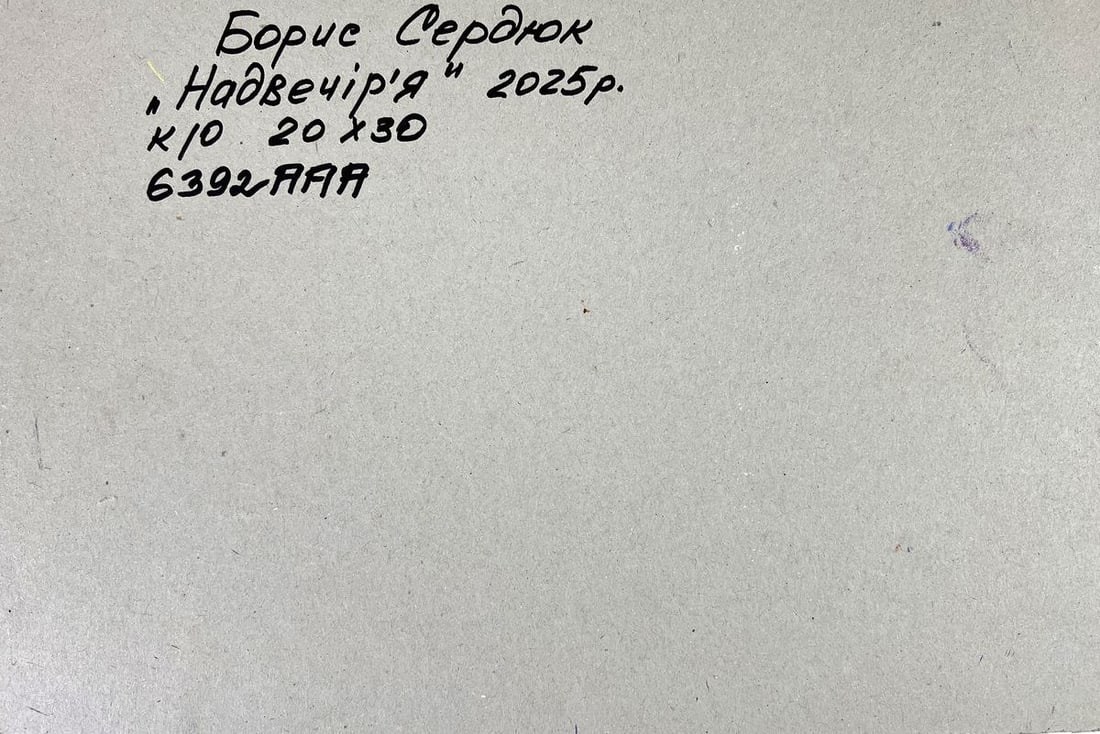 Борис Сердюк
„Надвечір'я" 2025р.
к/о 20х30
6392ААА